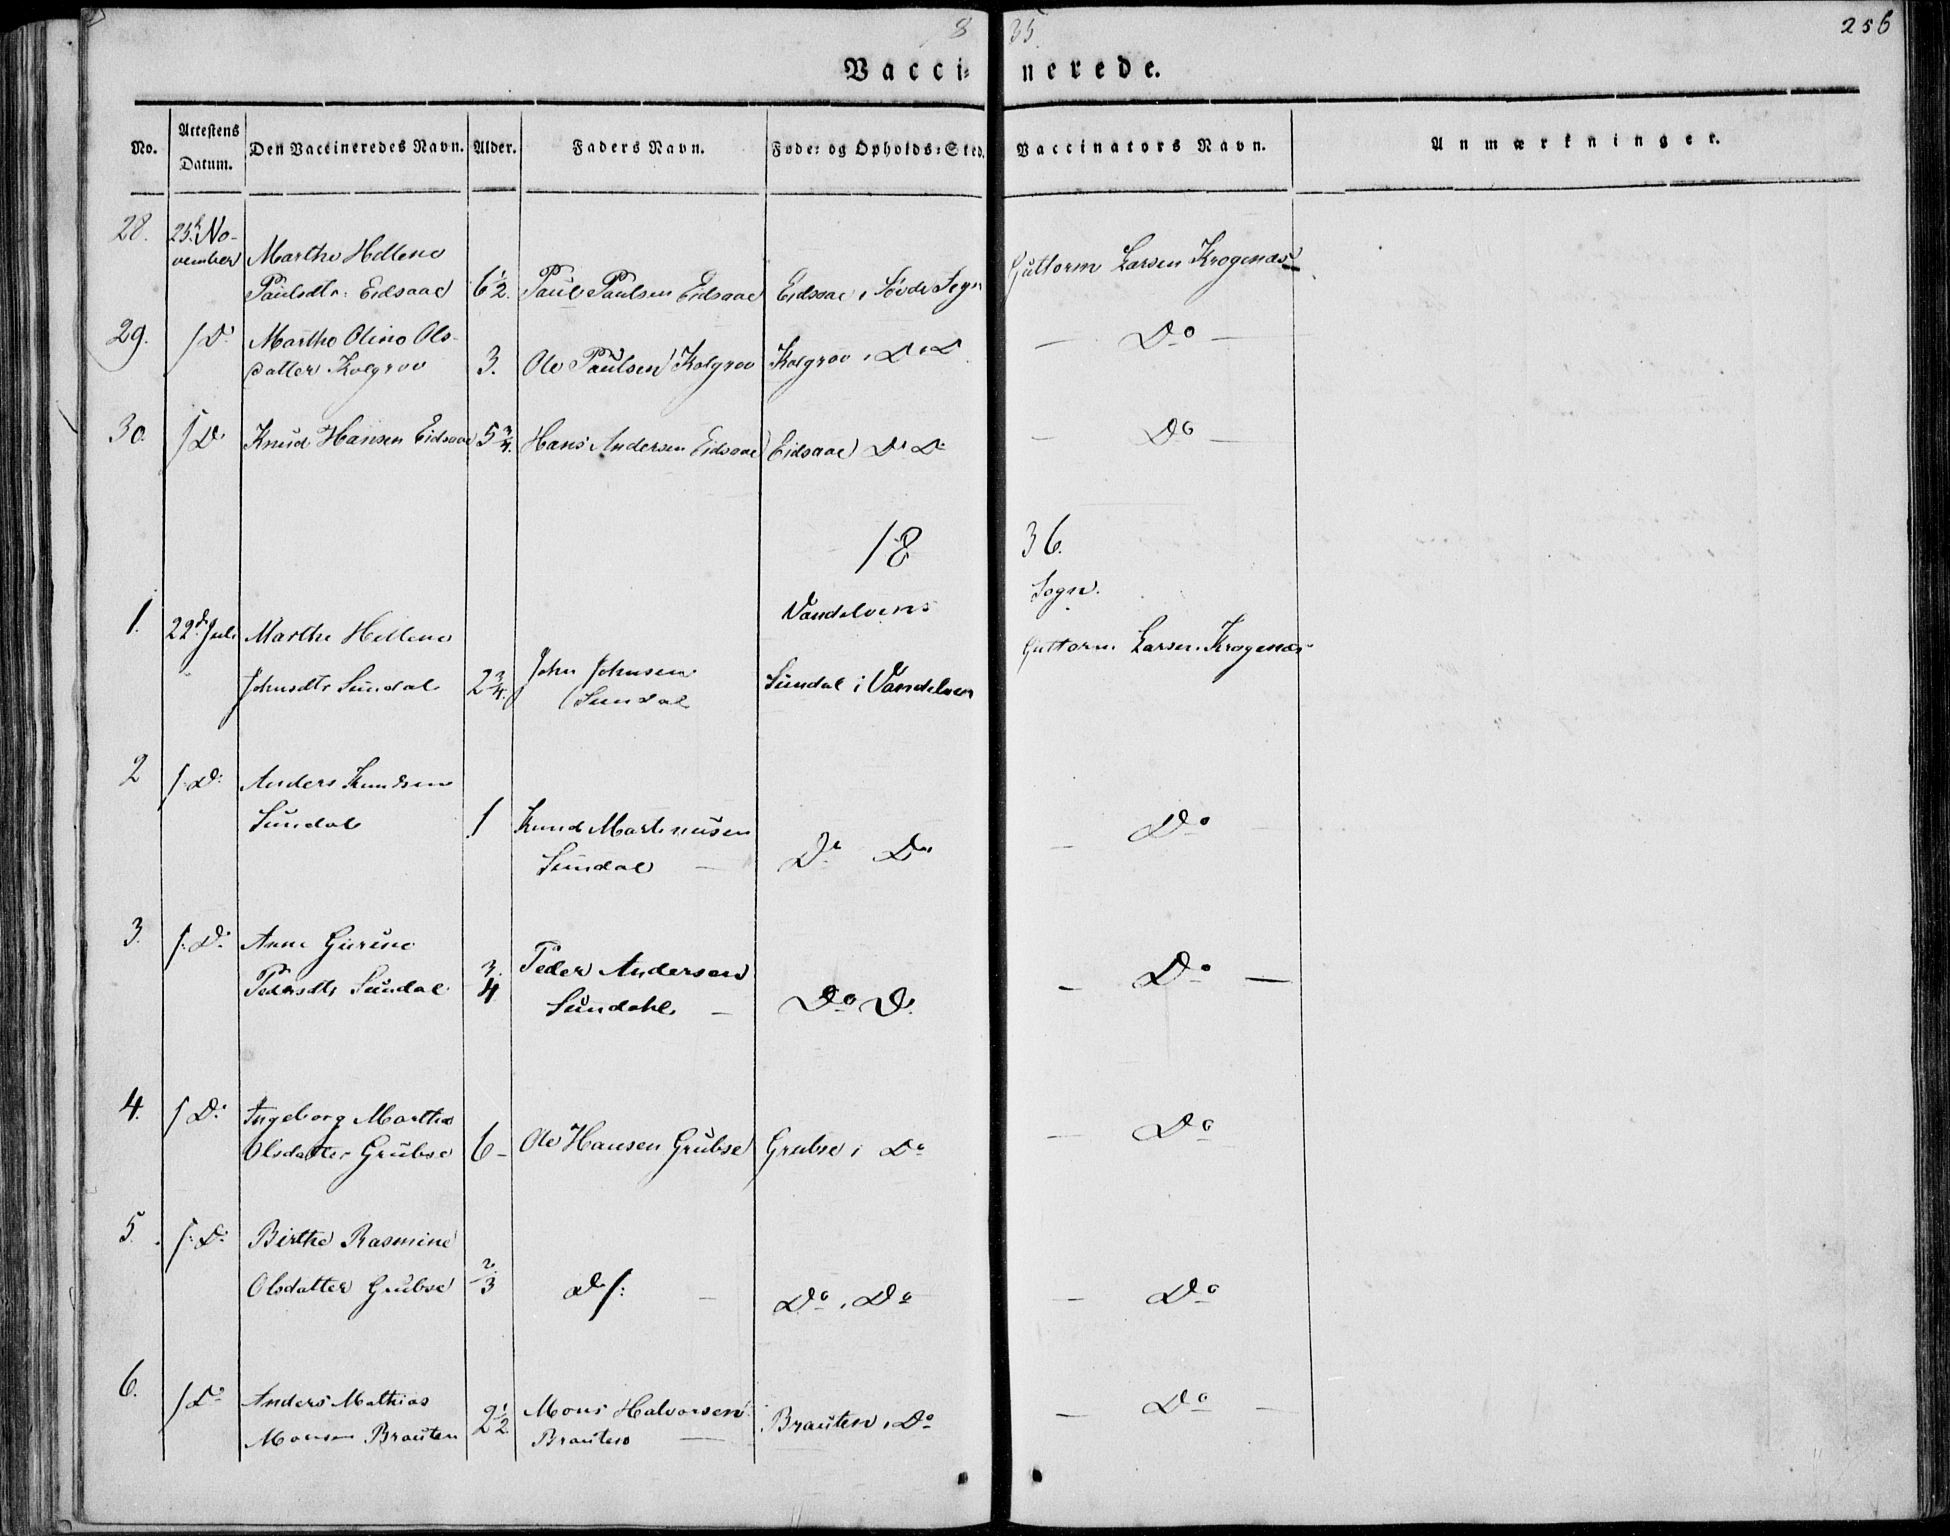 1835.
256
Vaccinerede.
No. Attestens Datum. Den Vaccineredes Navn. Alder. Faders Navn. Føde- og Opholds-Sted. Vaccinators Navn. Anmærkninger.
28. 25d No-
vember Marthe Hellene Guttorm Larsen Krogenæs
Paulsdtr: Eidsaae 6 1/2. Paul Paulsen Eidsaae Eidsaae i Sövde Sogn
29. / Do Marthe Oline Ols- — Do —
datter Kolgrov 3. Ole Paulsen Kolgrov Kolgrov i Do Do
30. / Do Knud Hansen Eidsaae 5 3/4. Hans Andersen Eidsaae Eidsaae Do Do — Do —
1836.
Vandelvens Sogn.
1. 22d Juli Marthe Hellene Guttorm Larsen Krogenæs
Johnsdtr Sundal 2 3/4. John Johnsen Sundal i Vandelven
Sundal
2 /: Do: Anders Knudsen
Sundal 1 Knud Martinusen — Do
Sundal — Do Do
3. /: Do Anne Gurine
Pedersdtr Sundal 3/4 Peder Andersen — Do —
Sundahl. — Do Do
4. / Do: Ingeborg Marthe — Do
Olsdatter Grubse 6 – Ole Hansen Grubse Grubse i Do
5. /: Do: Birthe Rasmine
Olsdatter Grubse 2/3 D /: — Do i Do — Do
6. / Do Anders Mathias — Do —
Monsen Brauten 2 1/2 Mons Halvorsen Brauten i Do
Brauten —